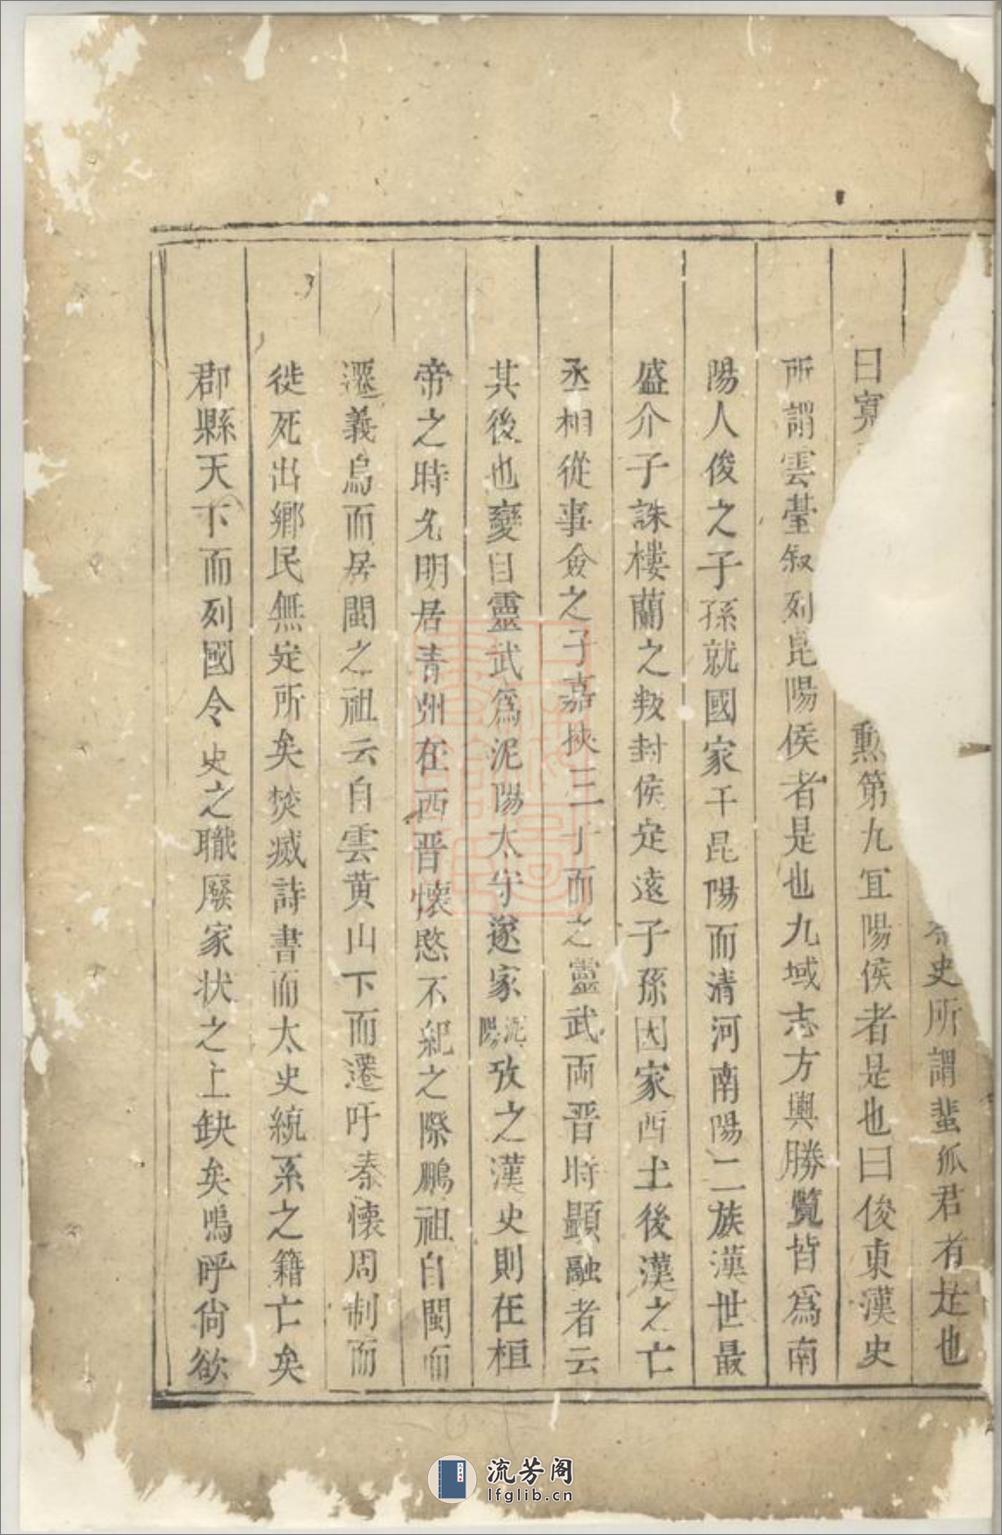 史所謂蜚狐君者是也
曰寬
勲第九宜陽侯者是也曰俊東漢史
所謂雲臺叙列昆陽侯者是也九域志方輿勝覽皆爲南
陽人俊之子孫就國家于昆陽而清河南陽二族漢世最
盛介子誅樓蘭之叛封侯定遠子孫因家西土後漢之亡
丞相從事僉之子嘉挾三丁而之靈武両晋時顯融者云
其後也變自靈武爲泥陽太守遂家泥陽攷之漢史則在桓
帝之時尤明居青州在西晋懐愍不紀之際鵬祖自閩而
遷義烏而居閩之祖云自雲黄山下而遷吁秦懐周制而
徙死出郷民無定所矣焚滅詩書而太史統系之籍亡矣
郡縣天下而列國令史之職廢家状之上缺矣嗚呼尚欲
流芳阁
lfglib.cn